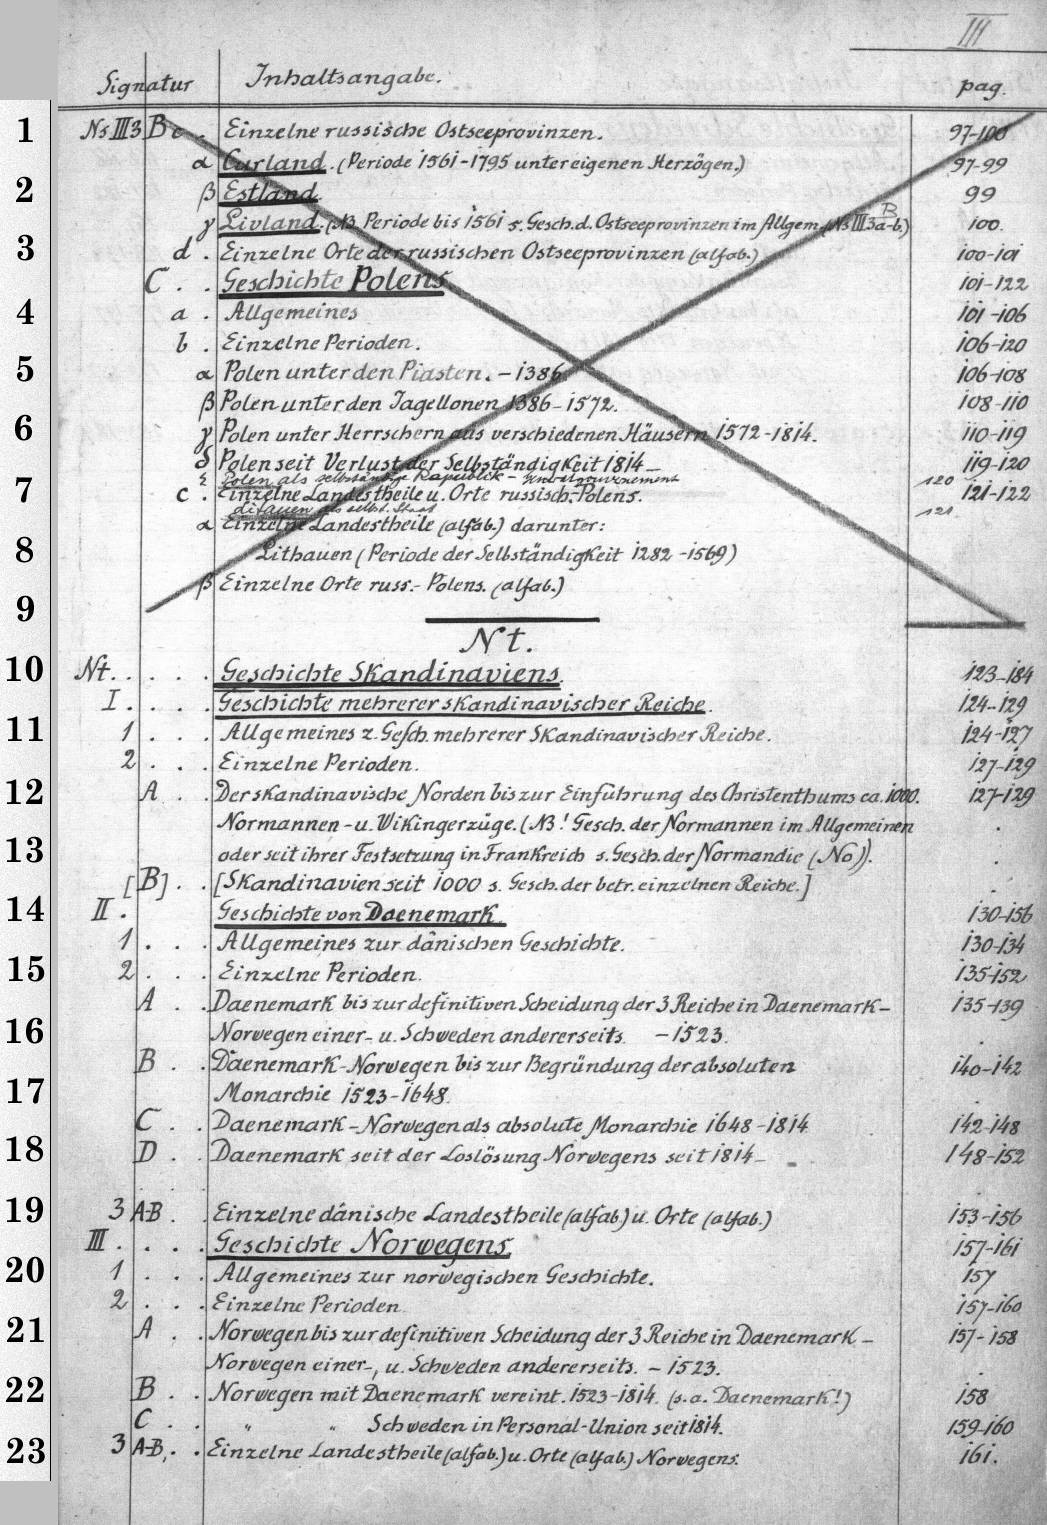 III
Signatur Inhaltsangabe. pag.
1 Ns III 3 B c . Einzelne russische Ostseeprovinzen. 97-100
α Curland. (Periode 1561-1795 unter eigenen Herzögen.) 97-99
2 β Estland. 99
γ Livland. (NB. Periode bis 1561 s. Gesch. d. Ostseeprovinzen im Allgem. (Ns III 3 B a-b.) 100.
3 d . Einzelne Orte der russischen Ostseeprovinzen (alfab.) 100-101
C . . Geschichte Polens 101-122
4 a . Allgemeines 101-106
b . Einzelne Perioden. 106-120
5 α Polen unter den Piasten. - 1386. 106-108
β Polen unter den Jagellonen 1386-1572. 108-110
6 γ Polen unter Herrschern aus verschiedenen Häusern 1572-1814. 110-119
δ Polen seit Verlust der Selbständigkeit 1814- 119-120
ε Polen als selbständige Republik - 120
7 c . Einzelne Landestheile u. Orte russisch-Polens. 121-122
Litauen als selbst. Staat 121
α Einzelne Landestheile (alfab.) darunter:
8 Lithauen (Periode der Selbständigkeit 1282-1569)
β Einzelne Orte russ.-Polens. (alfab.)
9
Nt.
10 Nt. . . . . Geschichte Skandinaviens. 123-184
I . . . . Geschichte mehrerer skandinavischer Reiche. 124-129
11 1 . . . Allgemeines z. Gesch. mehrerer Skandinavischer Reiche. 124-127
2 . . . Einzelne Perioden. 127-129
12 A . . Der skandinavische Norden bis zur Einführung des Christenthums ca. 1000. 127-129
Normannen- u. Wikingerzüge. (NB! Gesch. der Normannen im Allgemeinen .
13 oder seit ihrer Festsetzung in Frankreich s. Gesch. der Normandie (No)). .
[B] . . [Skandinavien seit 1000 s. Gesch. der betr. einzelnen Reiche.] .
14 II . Geschichte von Daenemark. 130-156
1 . . . Allgemeines zur dänischen Geschichte. 130-134
15 2 . . . Einzelne Perioden. 135-152
A . . Daenemark bis zur definitiven Scheidung der 3 Reiche in Daenemark- 135-139
16 Norwegen einer- u. Schweden andererseits. - 1523. .
B . . Daenemark-Norwegen bis zur Begründung der absoluten 140-142
17 Monarchie 1523-1648. .
C . . Daenemark-Norwegen als absolute Monarchie 1648-1814 142-148
18 D . . Daenemark seit der Loslösung Norwegens seit 1814- 148-152
19 3 A-B . . Einzelne dänische Landestheile (alfab.) u. Orte (alfab.) 153-156
III . . . . Geschichte Norwegens. 157-161
20 1 . . . Allgemeines zur norwegischen Geschichte. 157
2 . . . Einzelne Perioden 157-160
21 A . . Norwegen bis zur definitiven Scheidung der 3 Reiche in Daenemark- 157-158
Norwegen einer-, u. Schweden andererseits. - 1523. .
22 B . . Norwegen mit Daenemark vereint. 1523-1814. (s. a. Daenemark!) 158
C . . " " Schweden in Personal-Union seit 1814. 159-160
23 3 A-B, . . Einzelne Landestheile (alfab.) u. Orte (alfab.) Norwegens. 161.